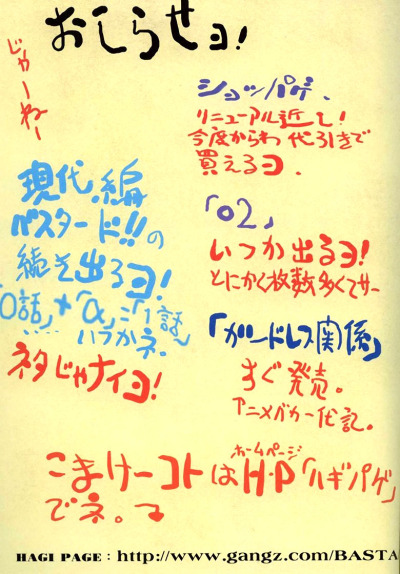 おしらせヨ!
じゃーねー
ショッパゲ.
リニューアル近し!
今度からわ 代引きで
買えるヨ.
現代編
バスタード!!の
続き出るヨ!
「0話」+「α」=「1話」
.... いつかネ.
ネタじゃナイヨ!
「02」
いつか出るヨ!
とにかく枚数多くてサー
「ガンドレス関係」
すぐ発売。
アニメバカ一代記。
ホームページ
こまけーコトはH・P「ハギパゲ」
でネ。
HAGI PAGE : http://www.gangz.com/BASTA